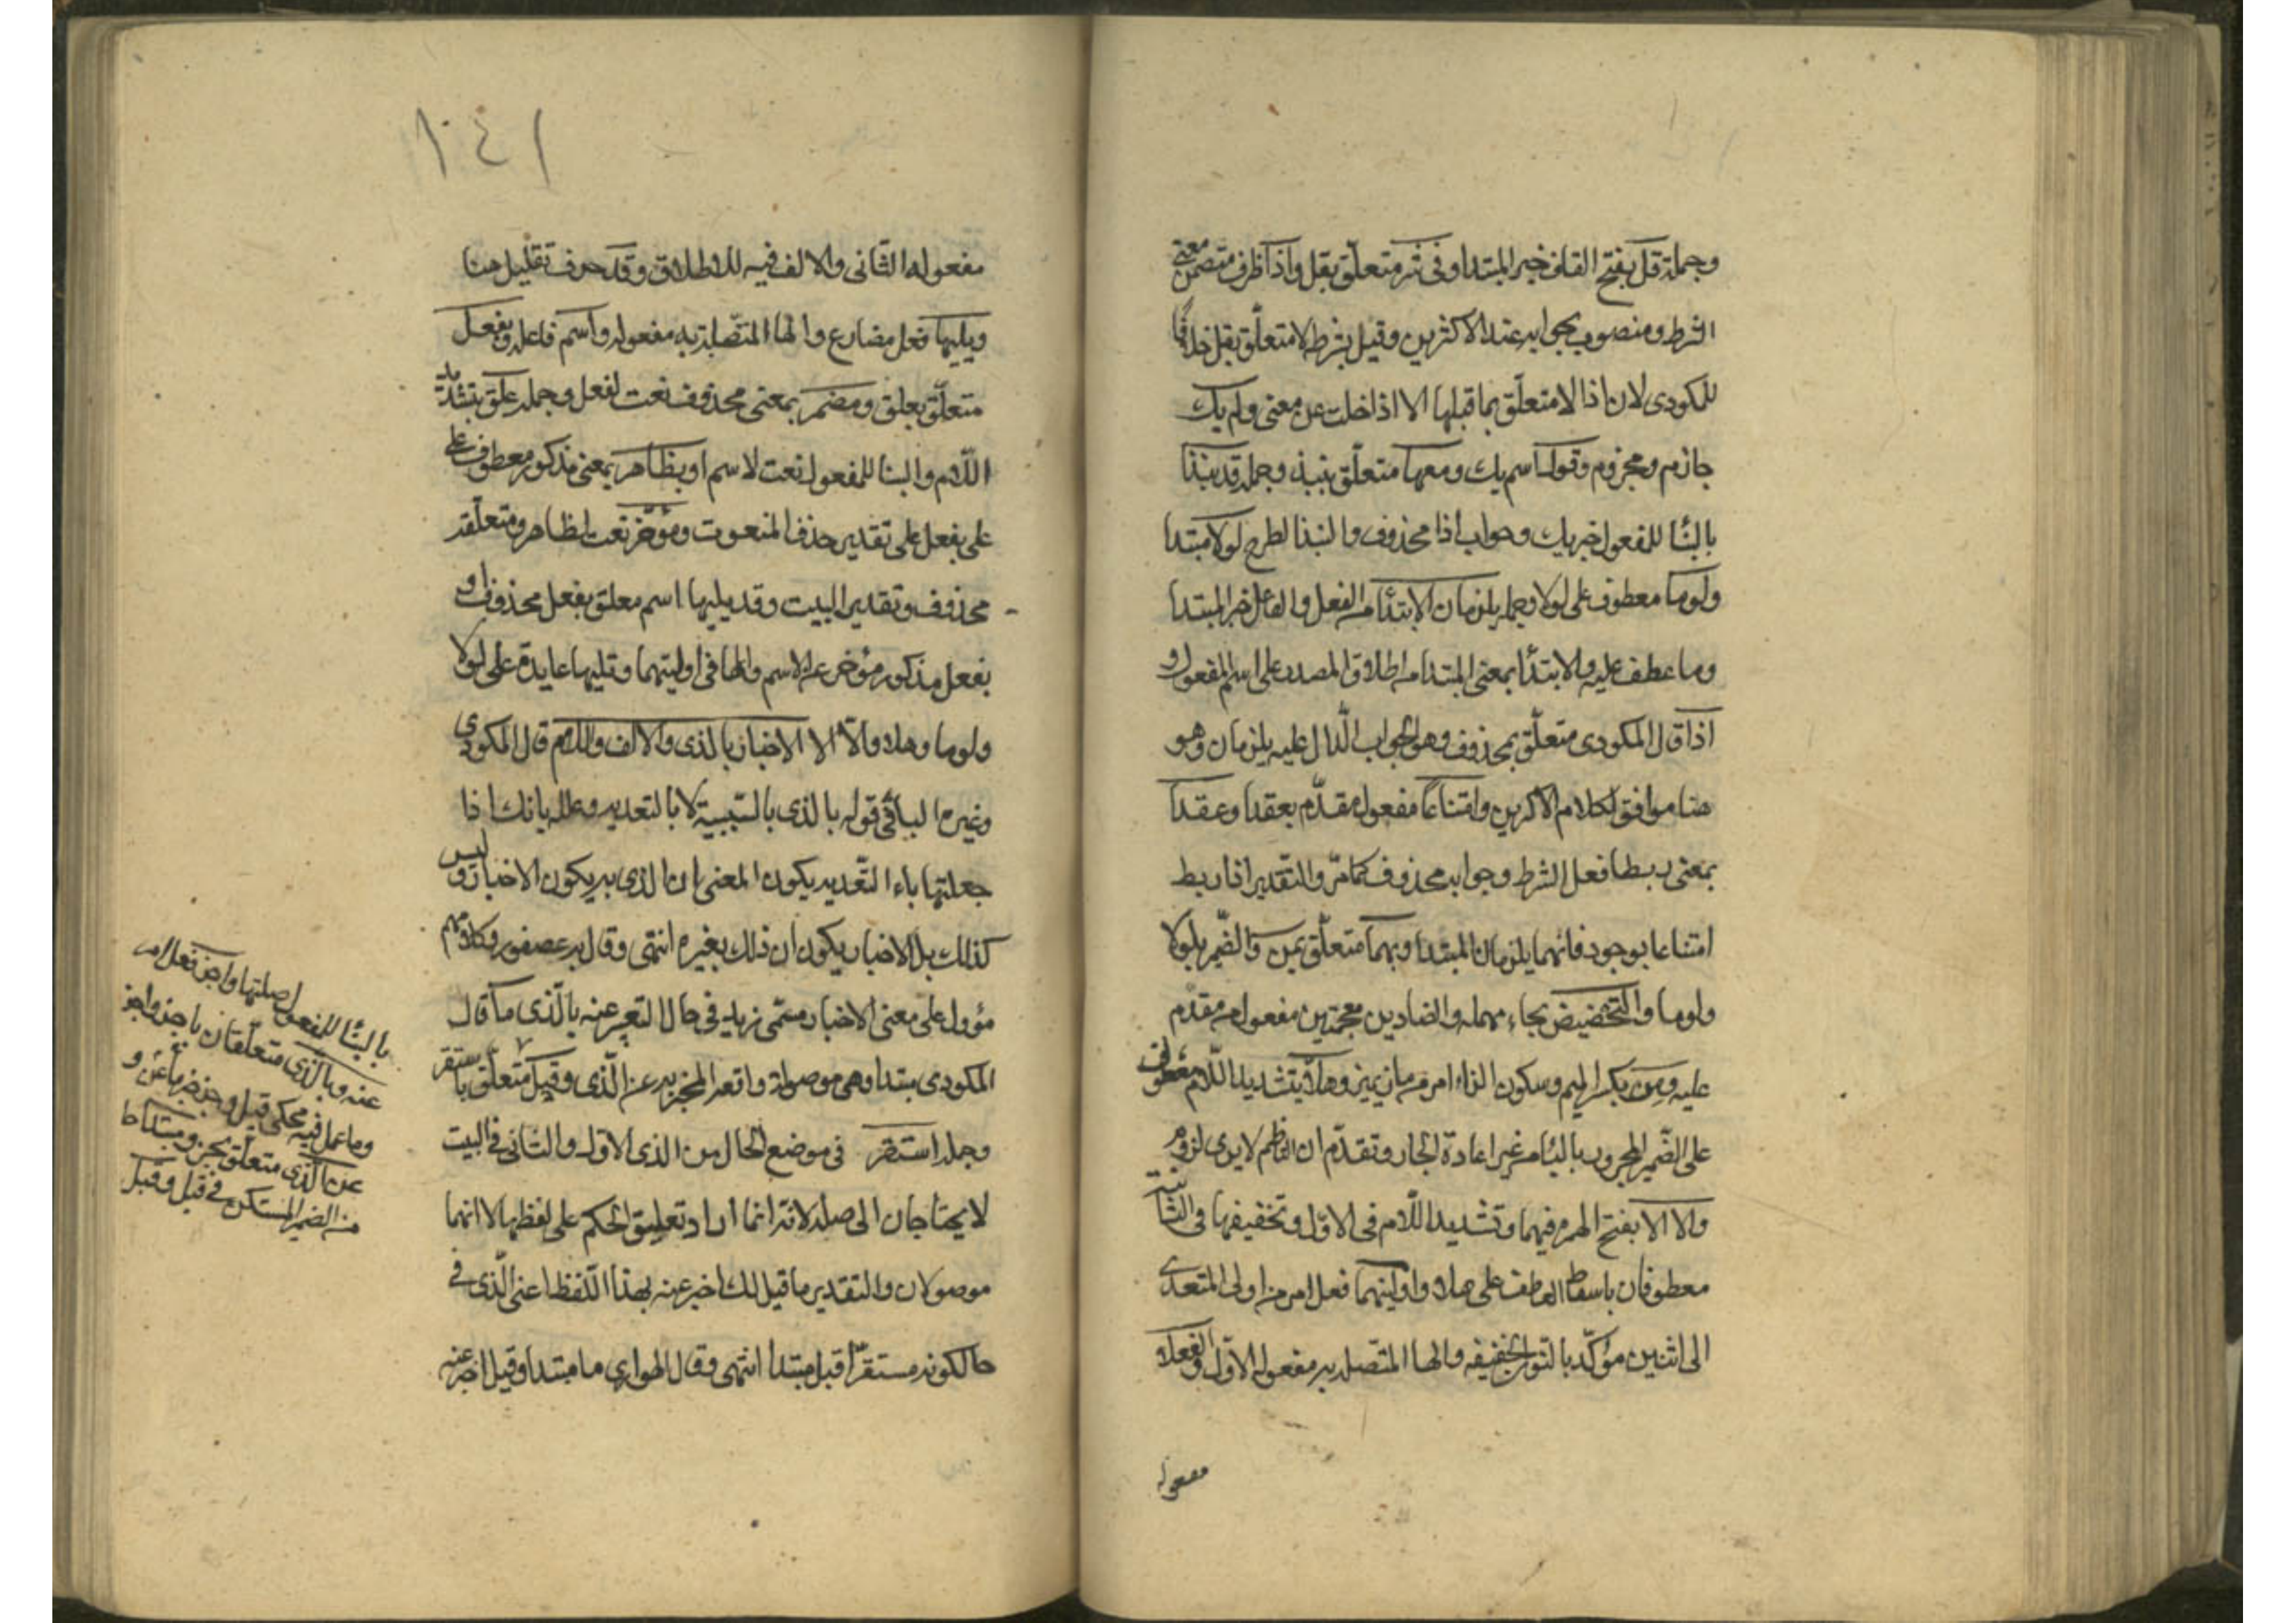 وجملة قل بفتح القاف خبر المبتدا وفى نثر متعلّق بقل واذا ظرف متضمن معنى
الشرط ومنصوب بجوابه عند الاكثرين وقيل بشرطه لا متعلّق بقل خلافًا
للمكودى لان اذا لا متعلّق بما قبلها الا اذا خلت عن معنى ولم يك
جازم ومجزوم وقول اسم يك ومعها متعلّق بنبذ وجملة قد نبذا
بالبنا للمفعول خبر يك وجواب اذا محذوف والنبذ الطرح لولا مبتدا
ولوما معطوف على لولا وجملة يلزمان الابتدا من الفعل والفاعل خبر المبتدا
وما عطف عليه والابتدا بمعنى المبتدا من اطلاق المصدر على اسم المفعول و
اذا قال المكودى متعلّق بمحذوف وهو الجواب الدّال عليه يلزمان وهو
هنا موافق لكلام الاكثرين وامتناعًا مفعول مقدّم بعقدا وعقدا
بمعنى ربطا فعل الشرط وجوابه محذوف كما مرّ والتقدير اذا ربط
امتناعا بوجود فانهما يلزمان المبتدا وبهما متعلّق بمن والضمير بلولا
ولوما والتحضيض بحاء مهملة والضادين معجمتين مفعول من مقدم
عليه ومِز بكسر الميم وسكون الزاء امر من ماز يميز وهلّا بتشديد اللّام معطوف
على الضّمير المجرور بالبا من غير اعادة الجار وتقدّم ان الناظم لا يرى لزومه
والا الا بفتح الهمزة فيهما وتشديد اللّام فى الاوّل وتخفيفها فى الثانية
معطوفان باسقاط العاطف على هلا واولينهما فعل امر من اولى المتعدى
الى اثنين مؤكّد بالنون الخفيفه والها المتصلة به مفعوله الاوّل والفعلا
مفعوله
١٤١
مفعوله الثّانى والالف فيه للاطلاق وقد حرف تقليل هنا
ويليها فعل مضارع والها المتّصلة به مفعوله واسم فاعله وبفعل
متعلّق بعلق ومضمر بمعنى محذوف نعت لفعل وجملة علّق بتشديد
اللّام والبنا للمفعول نعت لاسم او بظاهر بمعنى مذكور معطوف على
على بفعل على تقدير حذف المنعوت ومؤخّر نعت لظاهر ومتعلّقه
محذوف وتقدير البيت وقد يليها اسم معلق بفعل محذوف او
بفعل مذكور مؤخر عن الاسم والها فى اولينهما وتليها عايدة على لولا
ولوما وهلا والّا الا الاخبار بالذى والالف واللام قال المكودى
وغيره البا فى قوله بالذى بالسّببية لا بالتعدية وعلله بانك اذا
جعلتها باء التّعدية يكون المعنى ان الذى به يكون الاخبار وليس
كذلك بل الاخبار يكون ان ذلك بغيره انتهى وقال بر عصفور وكلامهم
مؤول على معنى الاخبار مسمّى زيد فى حال التعبير عنه بالّذى ما قال
المكودى مبتدا وهى موصولة واقعه المخبر به عن الّذى وقيل متعلّق باستقر
وجملة استقر فى موضع الحال من الذى الاوّل والثانى فى البيت
لا يحتاجان الى صلة لانّه انما اراد تعليق الحكم على لفظها لا انهما
موصولان والتقدير ما قيل لك اخبر عنه بهذا اللّفظ اعنى الّذى فى
حال كونه مستقرّا قبل مبتدا انتهى وقال الهوارى ما مبتدا وقيل اخبر عنه
بالبنا للمفعول صلتها واخبر فعل امر
عنه وبالّذى متعلّقان باخبر واخبر
وما عمل فيه محكى قيل وخبر خبر ما عن و
عن الّذى متعلّق بخبر ومبتدا حا
من الضمير المستكن فى قبل وقبل